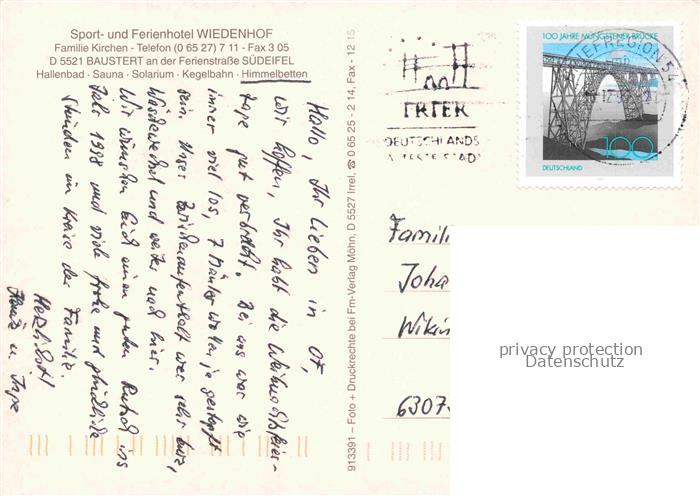 Sport- und Ferienhotel WIEDENHOF
Familie Kirchen - Telefon (0 65 27) 7 11 - Fax 3 05
D 5521 BAUSTERT an der Ferienstraße SÜDEIFEL
Hallenbad - Sauna - Solarium - Kegelbahn - Himmelbetten
Hallo, Ihr Lieben in Of,
wir hoffen, Ihr habt die Weihnachtsfeier-
tage gut verbracht. Bei uns war wie
immer viel los, 7 Mäuler wollen ja gestopft
sein. Unser Zwischenaufenthalt war sehr kurz,
Wäschewechsel und weiter nach hier.
Wir wünschen Euch einen guten Rutsch ins
Jahr 1998 und viele frohe und glückliche
Stunden im Kreise der Familie.
Herzlichst
u. Inge
913391 – Foto + Druckrechte bei Fm-Verlag Möhn, D 5527 Irrel, ☎ 0 65 25 - 2 14, Fax - 12 15
TRIER
DEUTSCHLANDS
ÄLTESTE STADT
BRIEFREGION 54
100 JAHRE MÜNGSTENER BRÜCKE
100
DEUTSCHLAND
Famili
Joha
Wikin
6307
privacy protection
Datenschutz